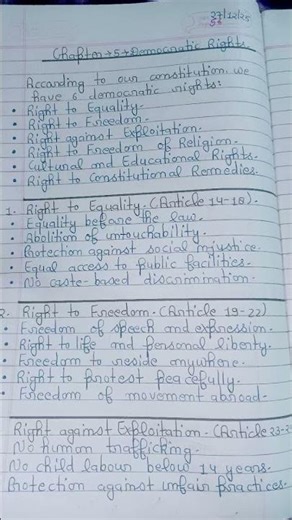 27/12/25
Chapter → 5 → Democratic Rights
According to our constitution we
have 6 democratic rights:
• Right to Equality.
• Right to Freedom.
• Right against Exploitation.
• Right to Freedom of Religion.
• Cultural and Educational Rights.
• Right to Constitutional Remedies.
1. Right to Equality. (Article 14-18).
• Equality before the law.
• Abolition of untouchability.
• Protection against social injustice.
• Equal access to public facilities.
• No caste-based discrimination.
2. Right to Freedom. (Article 19-22).
• Freedom of speech and expression.
• Right to life and personal liberty.
• Freedom to reside anywhere.
• Right to protest peacefully.
• Freedom of movement abroad.
Right against Exploitation. (Article 23-2
No human trafficking.
No child labour below 14 years.
Protection against unfair practices.